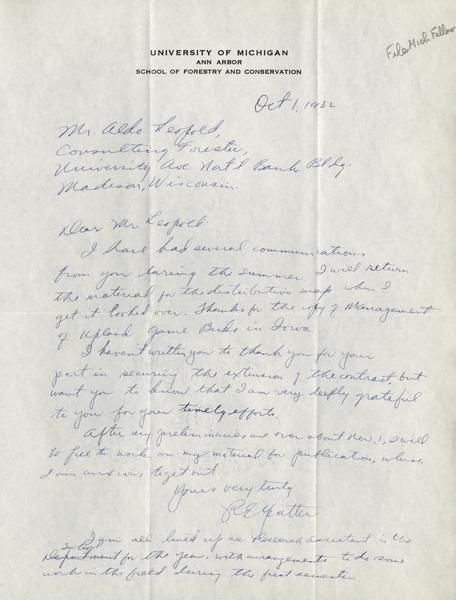 File Mich Fellow
UNIVERSITY OF MICHIGAN
ANN ARBOR
SCHOOL OF FORESTRY AND CONSERVATION
Oct 1, 1932
Mr. Aldo Leopold,
Consulting Forester,
University Ave Nat'l Bank Bldg.
Madison, Wisconsin.
Dear Mr. Leopold:
I have had several communications
from you during the summer. I will return
the material for the distribution map when I
get it looked over. Thanks for the copy of Management
of Upland Game Birds in Iowa.
I haven't written you to thank you for your
part in securing the extension of the contract, but
want you to know that I am very deeply grateful
to you for your timely efforts.
After my preliminaries are over about Nov. 1, I will
be free to work on my material for publication, which
I am anxious to get out.
Yours very truly
R E Yeatter
I am all lined up as Research assistant in the
Zoology
Department for the year, with arrangements to do some
work in the field during the first semester.